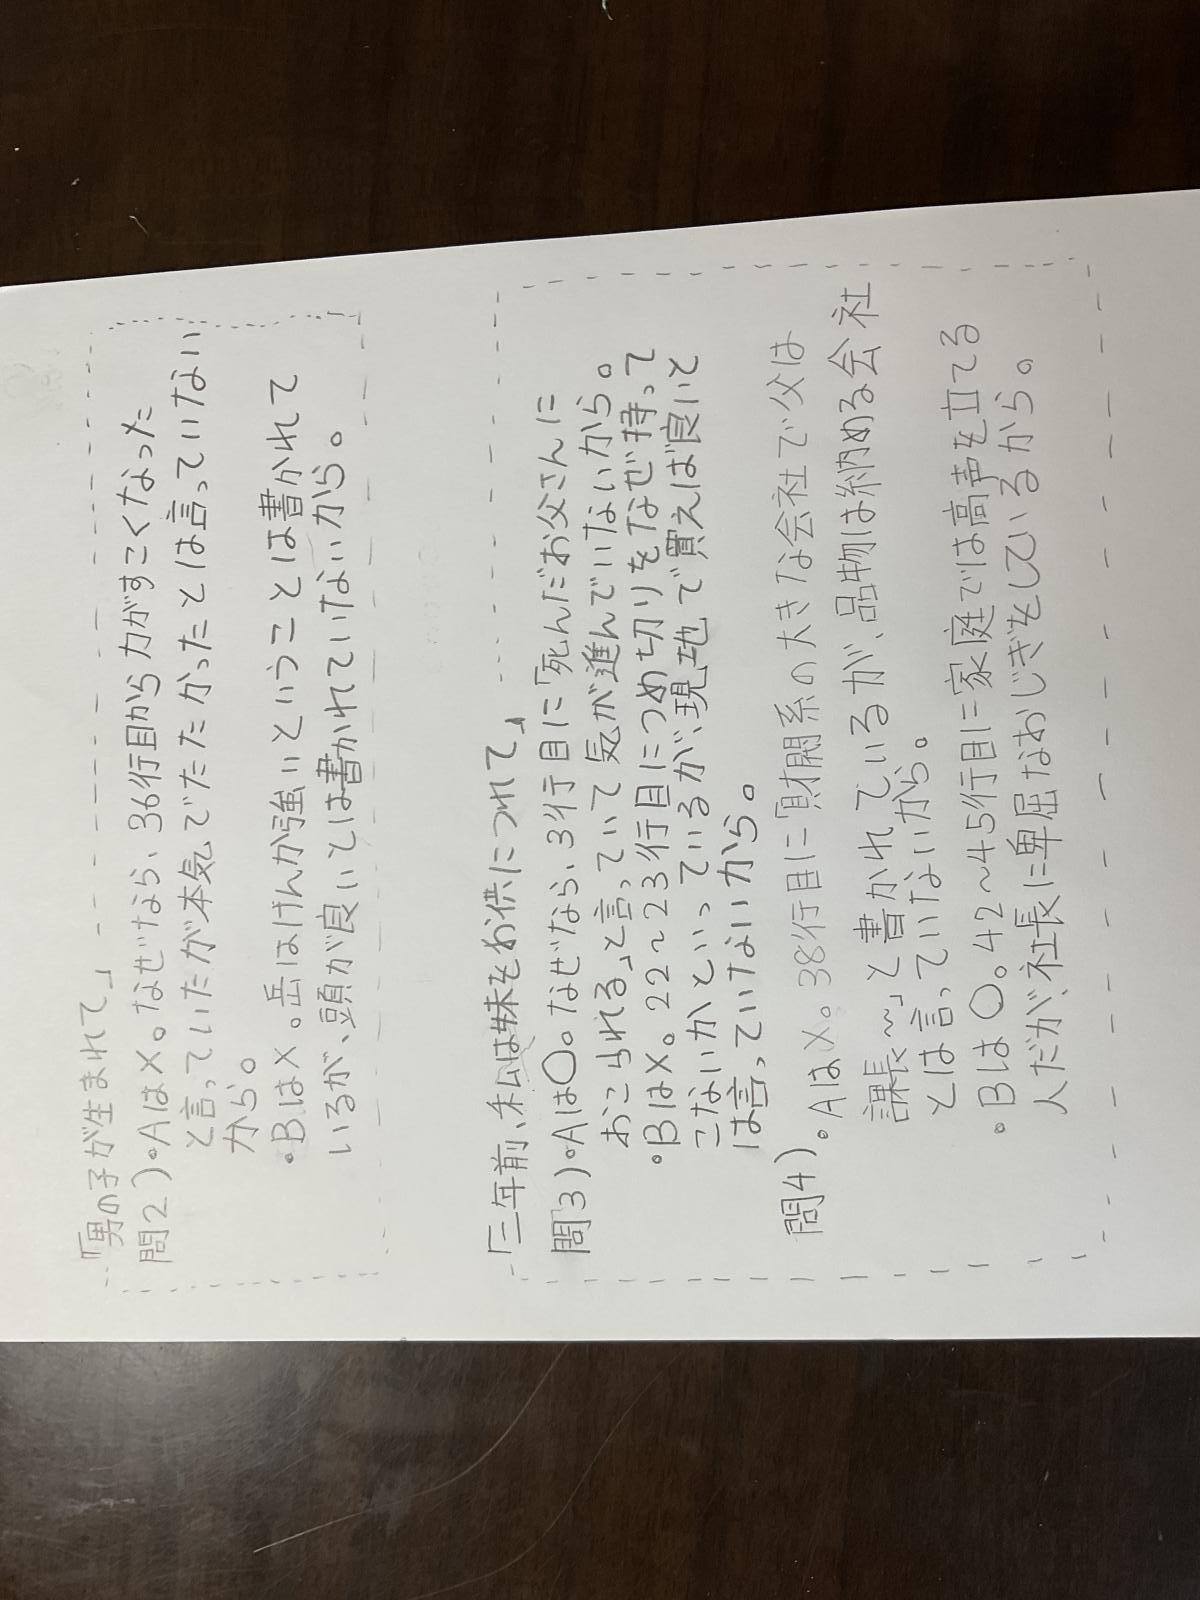 「男の子が生まれて」
問2)。Aは×。なぜなら、36行目から力がすこくなった
と言っていたが本気でたたかったとは言っていない
から。
・Bは×。岳はけんか強いということは書かれて
いるが、頭が良いとは書かれていないから。
「三年前、私は妹をお供につれて」
問3)。Aは〇。なぜなら、3行目に「死んだお父さんに
おこられる」と言っていて気が進んでいないから。
・Bは×。22~23行目につめ切りをなぜ持って
こないかといっているが、現地で買えば良いと
は言っていないから。
問4)。Aは×。38行目に「財閥系の大きな会社で父は
課長〰」と書かれているが、品物は納める会社
とは言っていないから。
・Bは〇。42~45行目に家庭では高声を立てる
人だが、社長に卑屈なおじぎをしているから。